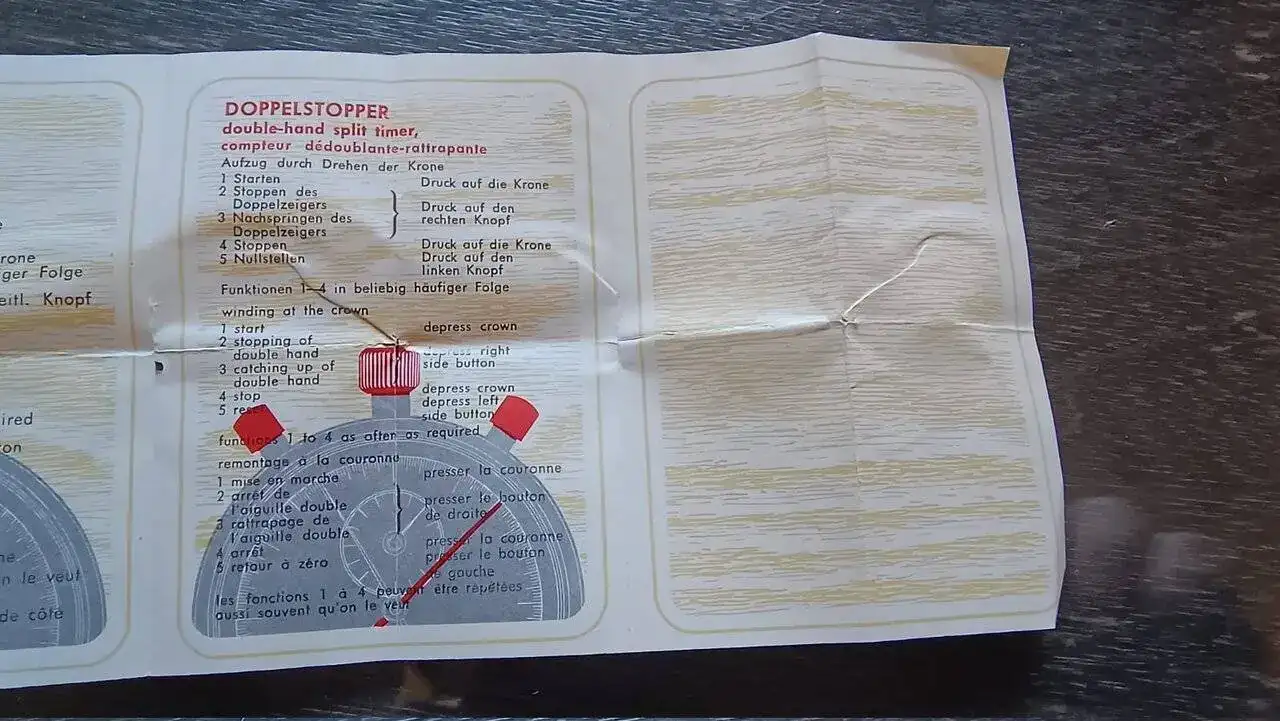 rone
ger Folge
eitl. Knopf
ired
on
n le veut
de côté
DOPPELSTOPPER
double-hand split timer,
compteur dédoublante-rattrapante
Aufzug durch Drehen der Krone
1 Starten Druck auf die Krone
2 Stoppen des
Doppelzeigers Druck auf den
3 Nachspringen des rechten Knopf
Doppelzeigers
4 Stoppen Druck auf die Krone
5 Nullstellen Druck auf den
linken Knopf
Funktionen 1—4 in beliebig häufiger Folge
winding at the crown
1 start depress crown
2 stopping of
double hand depress right
3 catching up of side button
double hand
4 stop depress crown
5 reset depress left
side button
functions 1 to 4 as after as required
remontage à la couronne
1 mise en marche presser la couronne
2 arrêt de
l'aiguille double presser le bouton
3 rattrapage de de droite
l'aiguille double
4 arrêt presser la couronne
5 retour à zéro presser le bouton
de gauche
les fonctions 1 à 4 peuvent être répétées
aussi souvent qu'on le veut